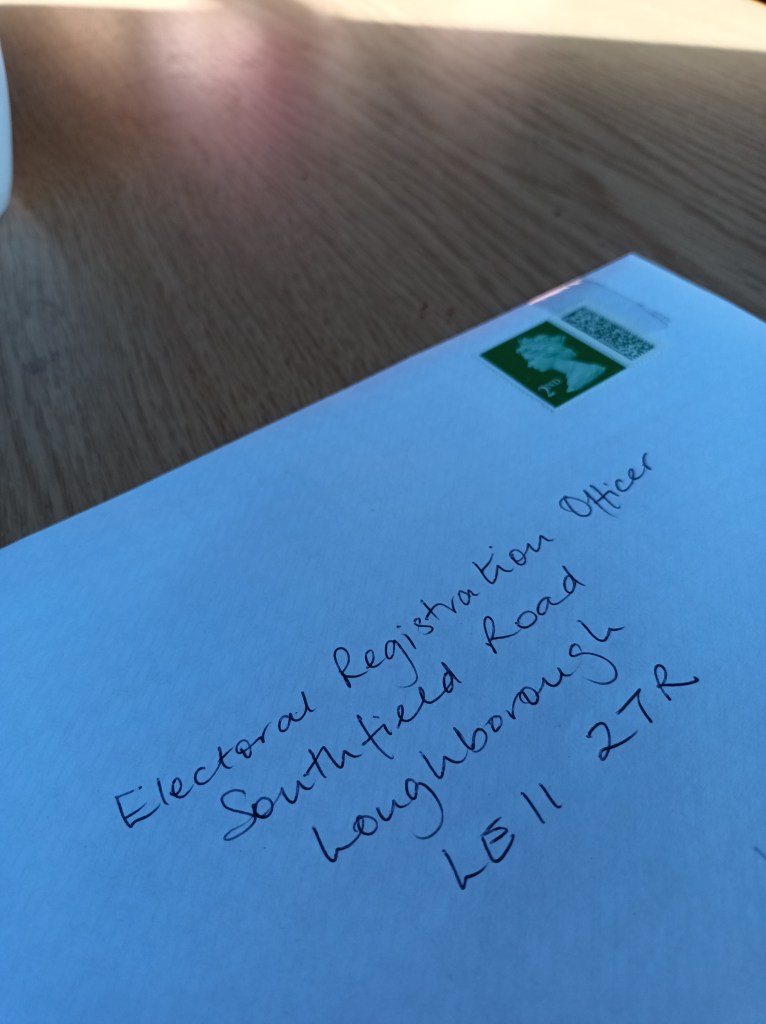 2ND
Electoral Registration Officer
Southfield Road
Loughborough
LE11 2TR